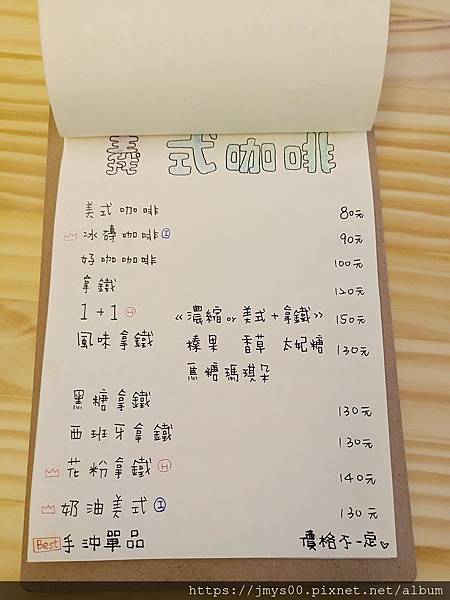 義式咖啡
美式咖啡 80元
冰磚咖啡 I 90元
好咖咖啡 100元
拿鐵 120元
1+1 H 《濃縮 or 美式+拿鐵》 150元
風味拿鐵 榛果 香草 太妃糖 130元
焦糖瑪琪朵
黑糖拿鐵 130元
西班牙拿鐵 130元
花粉拿鐵 H 140元
奶油美式 I 130元
Best 手沖單品 價格不一定♡
https://jmys00.pixnet.net/album